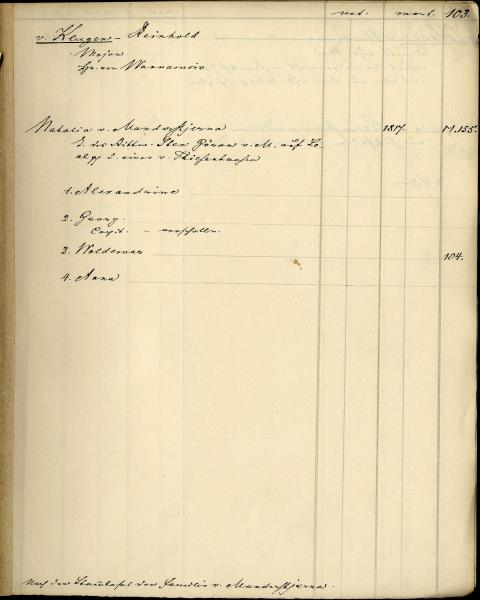 nat. mort. 103.
v. Kluger Reinhold
Major
Herr von Wannamois
Natalia v. Manderstjerna 1817. M. 155.
T. des Rittm. Iten Göran v. M. auf
2. einer v. Thiesenhausen
1. Alexandrine
2. Georg.
Capit. – verschollen.
3. Woldemar 104.
4. Anna
Nach der Stammtafel der Familie v. Manderstjerna.